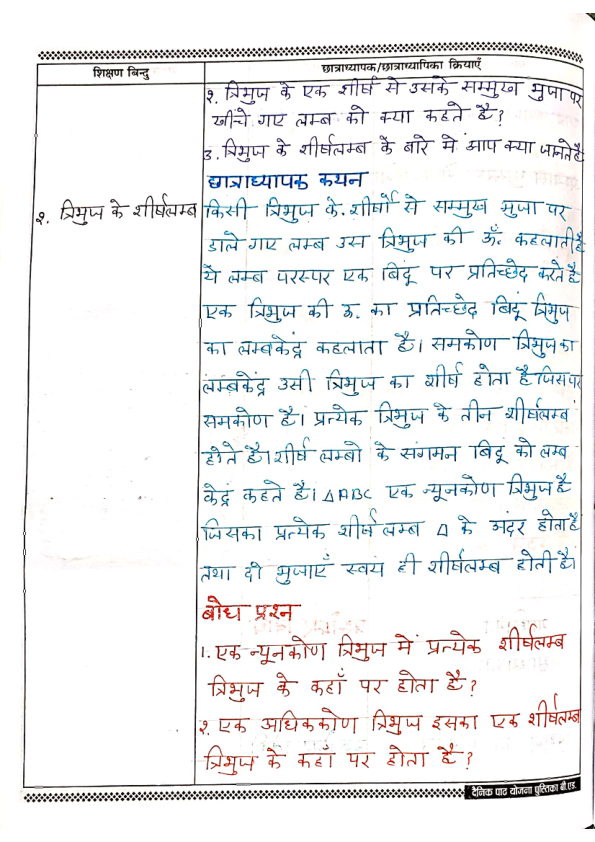 शिक्षण बिन्दु
छात्राध्यापक/छात्राध्यापिका क्रियाएँ
२. त्रिभुज के एक शीर्ष से उसके सम्मुख भुजा पर
खींचे गए लम्ब को क्या कहते है?
3. त्रिभुज के शीर्षलम्ब के बारे में आप क्या जानते है
छात्राध्यापक कथन
२. त्रिभुज के शीर्षलम्ब
किसी त्रिभुज के शीर्षो से सम्मुख भुजा पर
डाले गए लम्ब उस त्रिभुज की ऊँ. कहलाती है
ये लम्ब परस्पर एक बिंदू पर प्रतिच्छेद करते है
एक त्रिभुज की ऊ. का प्रतिच्छेद बिंदू त्रिभुज
का लम्बकेंद्र कहलाता है। समकोण त्रिभुज का
लंम्बकेंद्र उसी त्रिभुज का शीर्ष होता है जिस पर
समकोण है। प्रत्येक त्रिभुज के तीन शीर्षलम्ब
होते है। शीर्ष लम्बो के संगमन बिदूं को लम्ब
केद्रं कहते है। △ABC एक न्यूनकोण त्रिभुज है
जिसका प्रत्येक शीर्ष लम्ब △ के अंदर होता है
तथा दो भुजाएँ स्वयं ही शीर्षलम्ब होती है।
बोध प्रश्न
1. एक न्यूनकोण त्रिभुज में प्रत्येक शीर्षलम्ब
त्रिभुज के कहाँ पर होता है?
२. एक अधिककोण त्रिभुज इसका एक शीर्षलम्ब
त्रिभुज के कहाँ पर होता है?
दैनिक पाठ योजना पुस्तिका बी.एड.